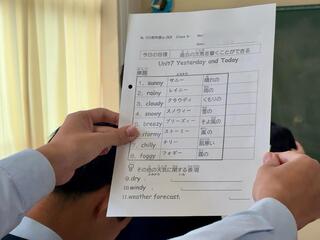 今日の目標 過去の天気を書くことができる
Unit7 Yesterday and Today
単語
1. sunny サニー 晴れの
2. rainy レイニー 雨の
3. cloudy クラウディ くもりの
4. snowy スノウィー 雪の
breezy ブリーズィー そよ風の
stormy ストーミー 嵐の
7. chilly チリー 肌寒い
8. foggy フォギー 霧の
その他の天気に関する表現
9. dry
10. windy
11. weather forecast: